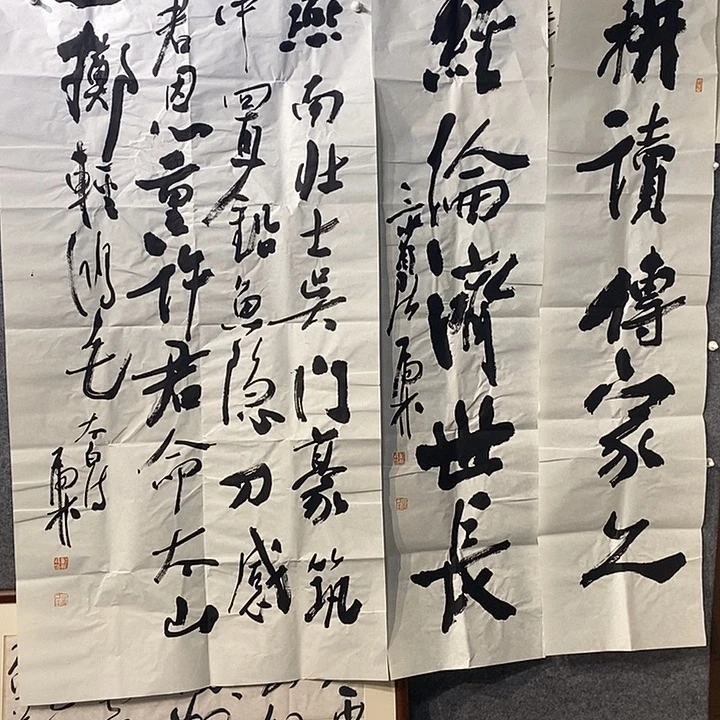 耕讀傳家久
經綸濟世長
燕南壯士吳門豪筑
中置鉛魚隐刀感
君恩重許君命太山
一擲輕鴻毛
太白詩